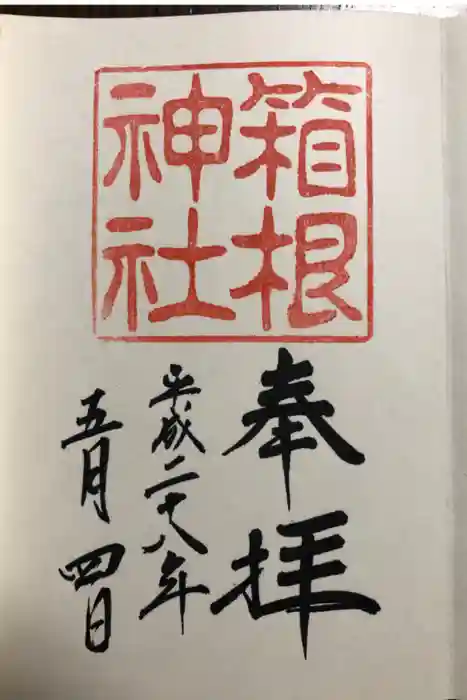 箱根
神社
奉拝
平成二十八年
五月四日